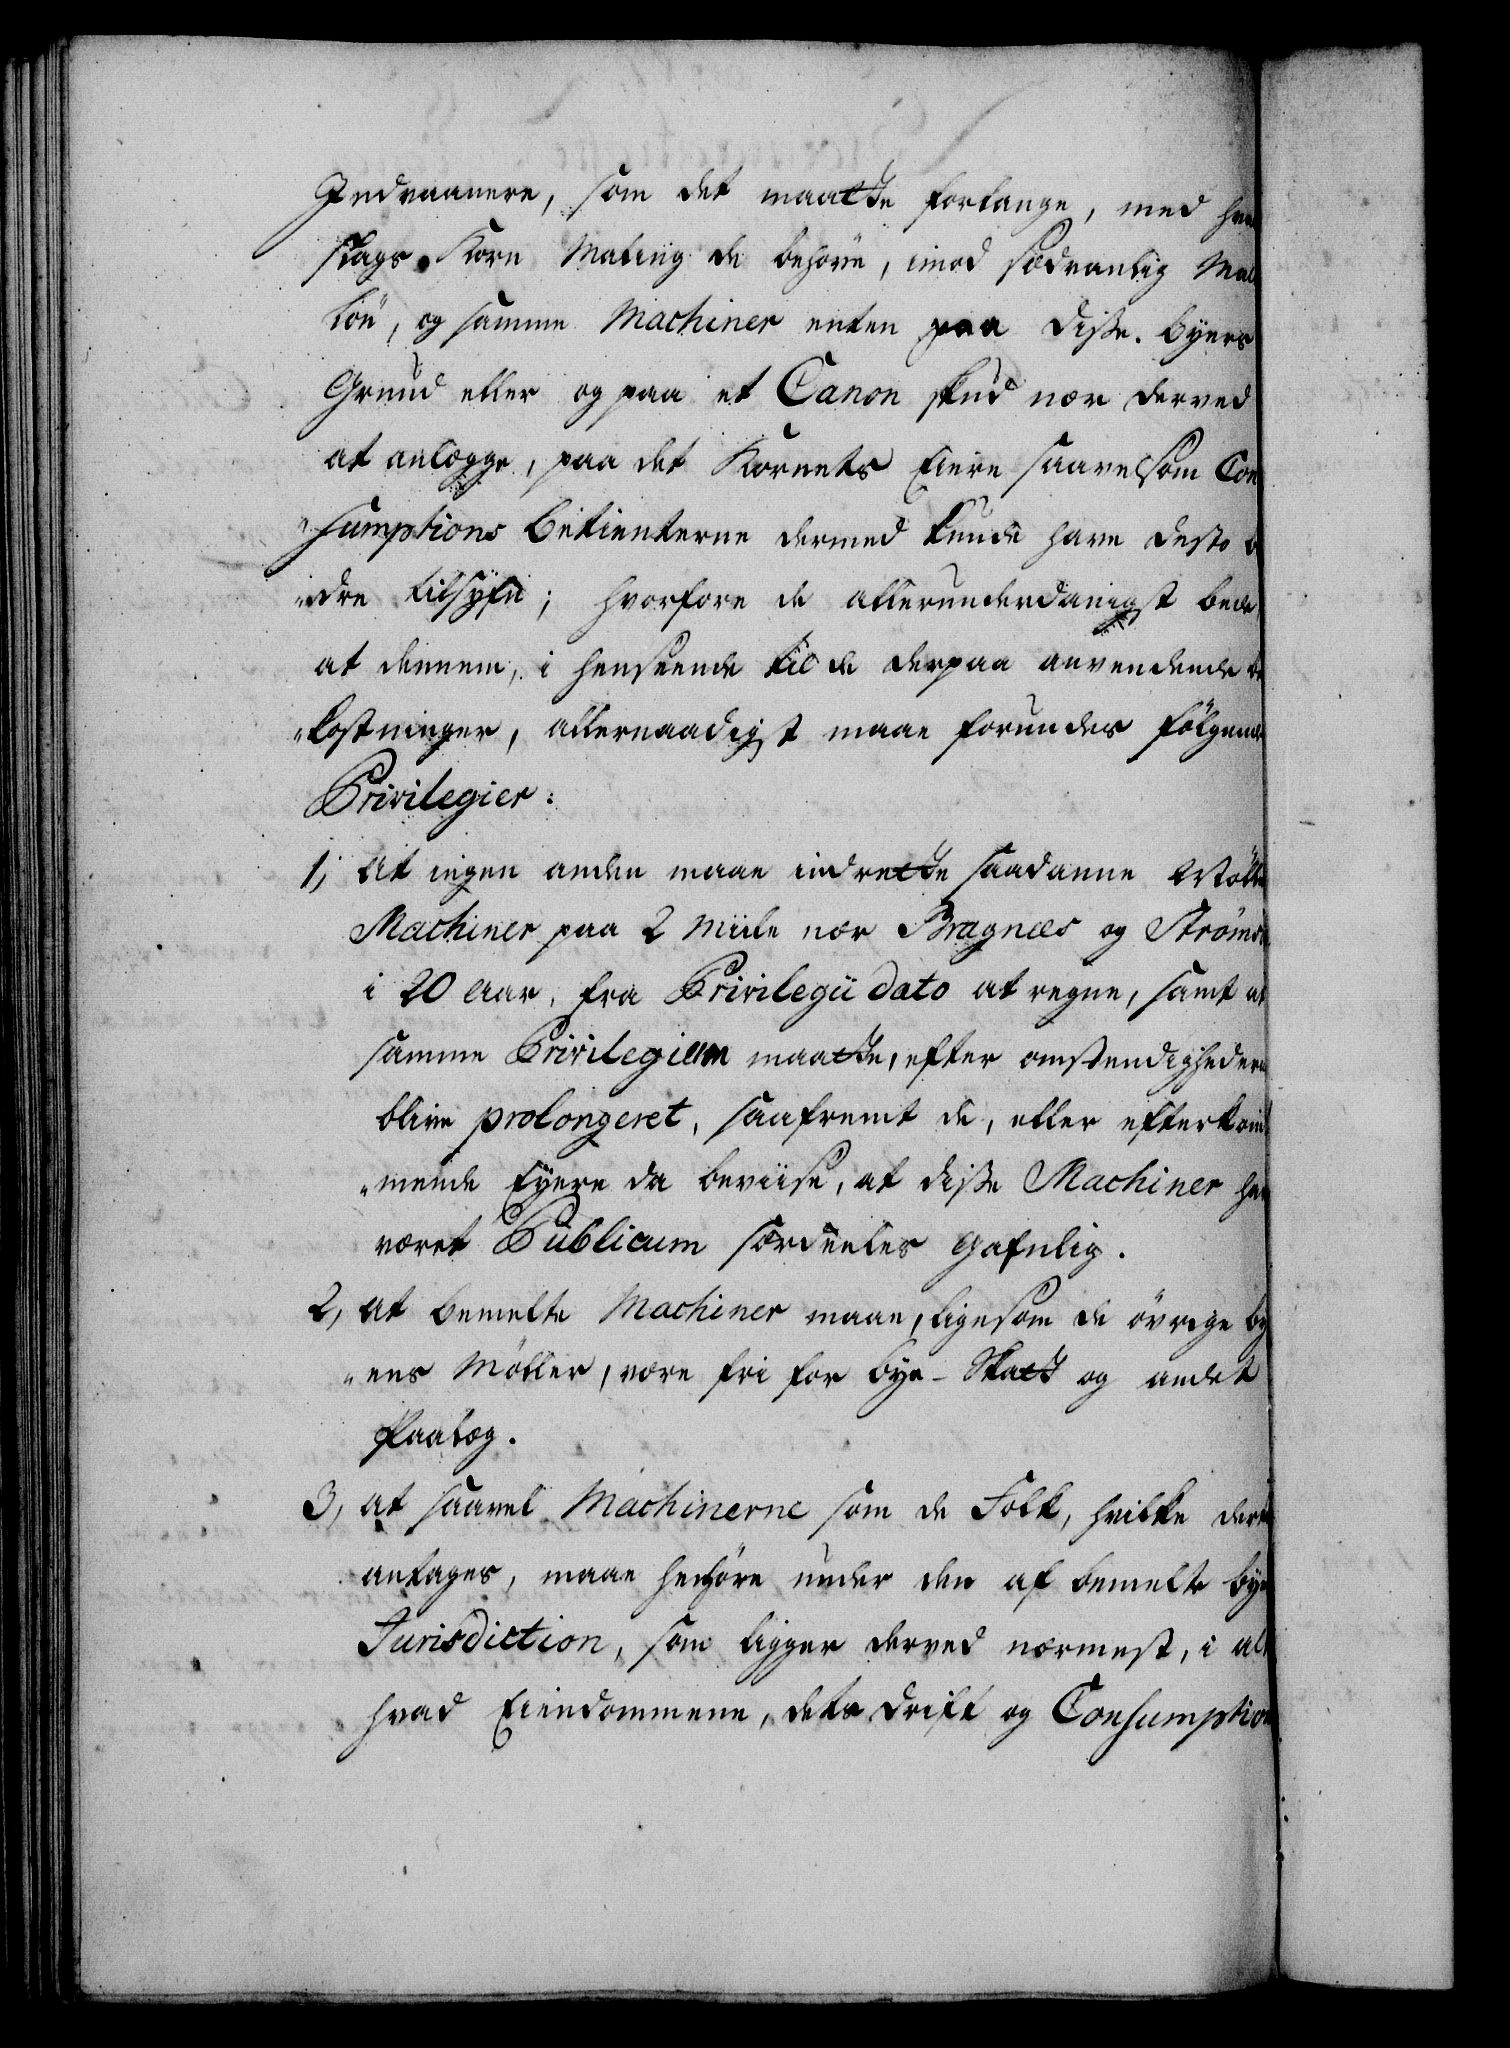 Indvaanere, som det maatte forlange, med hva
slags Korn Maling de behöve, imod sædvanlig Mal
lön, og samme Machiner enten paa disse Byers
Grund eller og paa et Canon skud nær derved
at anlægge, paa det Kornets Eiere saavelsom Con
„sumptions Betienterne dermed kunde have desto be
„dre tilsyn; hvorfore de allerunderdanigst bede,
at dennem, i henseende til de derpaa anvendende be
„kostninger, allernaadigst maae forundes fölgende
Privilegier:
1, At ingen anden maae indrette saadanne Mölle
Machiner paa 2 Miile nær Bragnæs og Strömsö
i 20 Aar, fra Privilegii dato at regne, samt at
samme Privilegium maatte, efter omstendighederne
blive prolongeret, saafremt de, eller efterkom
„mende Eyere da beviise, at disse Machiner har
været Publicum særdeeles gafnlig.
2, at bemelte Machiner maae, ligesom de övrige by
„ens Möller, være fri for Bye-Skatt og andet
Paalæg.
3, at saavel Machinerne som de Folk, hvilke dertil
antages, maae henhöre under den af bemelte Bye
Jurisdiction, som ligger derved nærmest, i alt
hvad Eiendommene, dets drift og Consumption